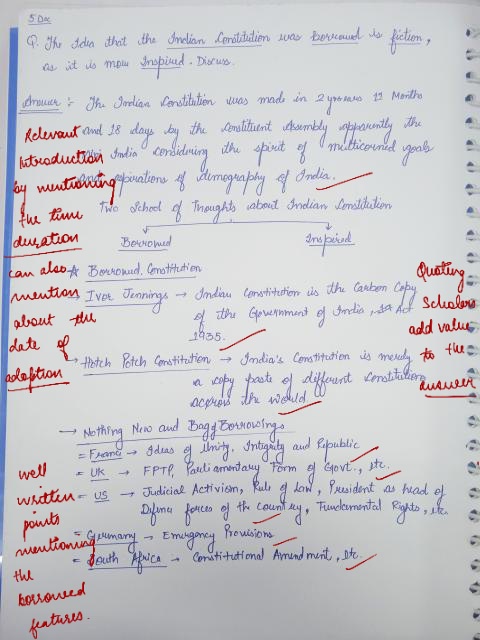 5 Dec
Q. The Idea that the Indian Constitution was borrowed is fiction,
as it is more Inspired. Discuss.
Answer :- The Indian Constitution was made in 2 years 11 Months
and 18 days by the Constituent Assembly apparently the
India considering the spirit of multicorned goals
and aspirations of demography of India.
Two School of Thoughts about Indian Constitution
Borrowed Inspired
* Borrowed Constitution
→ Iver Jennings → Indian Constitution is the Carbon Copy
of the Government of India, Act
1935.
→ Hotch Potch Constitution → India's Constitution is merely
a copy paste of different Constitutions
across the world
→ Nothing New and Bag of Borrowings
= France → Ideas of Unity, Integrity and Republic
= UK → FPTP, Parliamentary Form of Govt., etc.
= US → Judicial Activism, Rule of Law, President as head of
Defence forces of the Country, Fundamental Rights, etc.
= Germany → Emergency Provisions
= South Africa → Constitutional Amendment, etc.
Relevant
Introduction
by mentioning
the time
duration
can also
mention
about the
date of
adoption
Quoting
Scholars
add value
to the
answer
well
written
points
mentioning
the
borrowed
features.